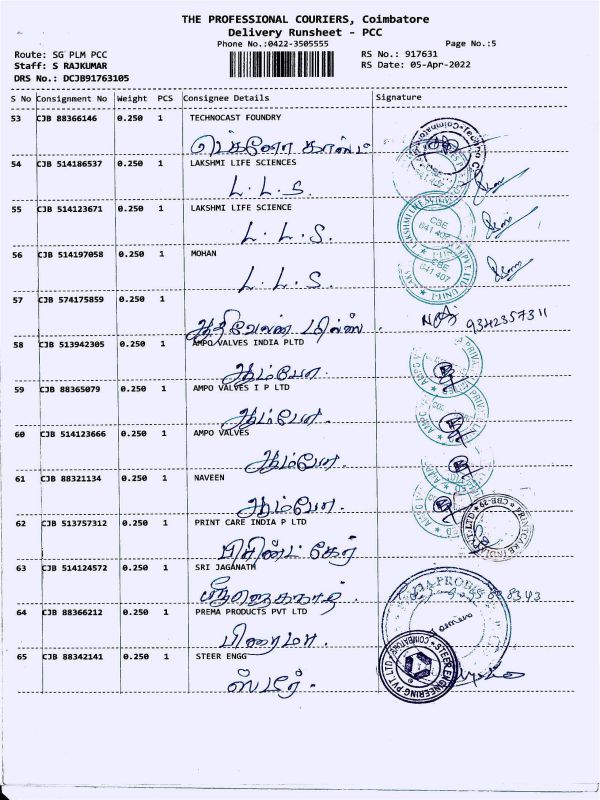 THE PROFESSIONAL COURIERS, Coimbatore
Delivery Runsheet - PCC
Phone No.:0422-3505555 Page No.:5
Route: SG PLM PCC RS No.: 917631
Staff: S RAJKUMAR RS Date: 05-Apr-2022
DRS No.: DCJB91763105
S No Consignment No Weight PCS Consignee Details Signature
53 CJB 88366146 0.250 1 TECHNOCAST FOUNDRY
54 CJB 514186537 0.250 1 LAKSHMI LIFE SCIENCES
L. L. S.
55 CJB 514123671 0.250 1 LAKSHMI LIFE SCIENCE
L. L. S.
CBE
641 407
56 CJB 514197058 0.250 1 MOHAN
L. L. S.
CBE
641 407
57 CJB 574175859 0.250 1
9342357311
58 CJB 513942305 0.250 1 AMPO VALVES INDIA PLTD
ஆம்போ.
59 CJB 88365079 0.250 1 AMPO VALVES I P LTD
ஆம்போ.
60 CJB 514123666 0.250 1 AMPO VALVES
ஆம்போ.
61 CJB 88321134 0.250 1 NAVEEN
ஆம்போ.
62 CJB 513757312 0.250 1 PRINT CARE INDIA P LTD
பிரிண்ட் கேர்
63 CJB 514124572 0.250 1 SRI JAGANATH
ஸ்ரீஜெகநாத்
64 CJB 88366212 0.250 1 PREMA PRODUCTS PVT LTD
பிரைமா.
65 CJB 88342141 0.250 1 STEER ENGG
ஸ்டீர்.
STEER ENGINEERING PVT LTD
COIMBATORE